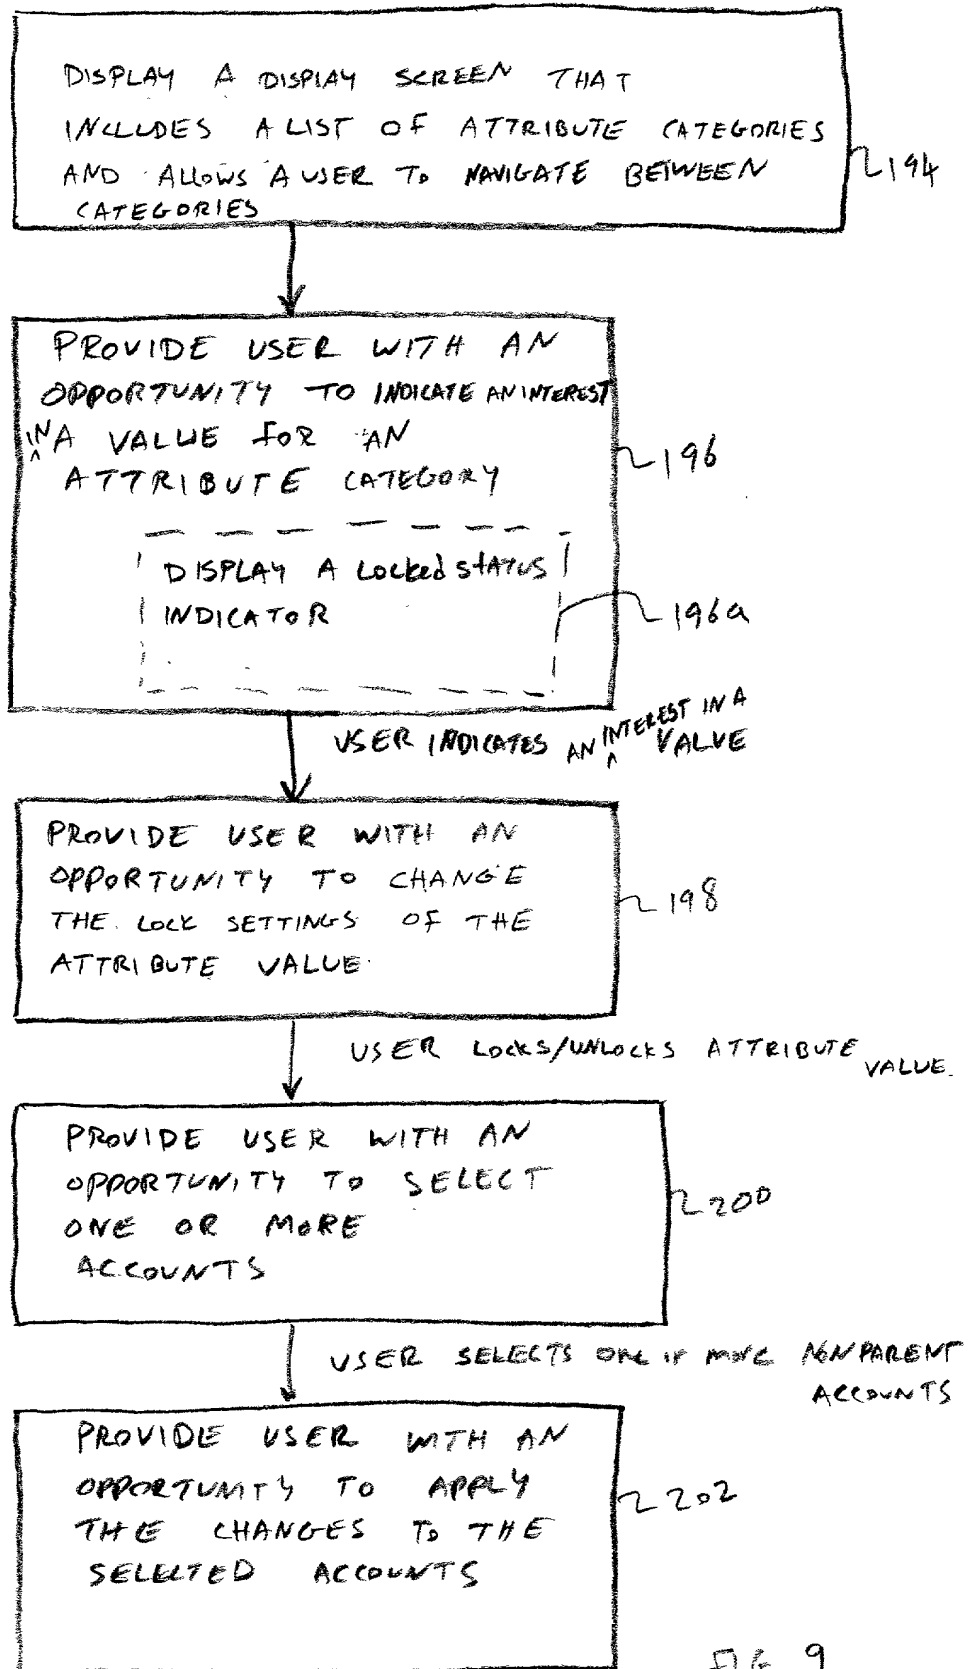 DISPLAY A DISPLAY SCREEN THAT
INCLUDES A LIST OF ATTRIBUTE CATEGORIES
AND ALLOWS A USER TO NAVIGATE BETWEEN
CATEGORIES
194
PROVIDE USER WITH AN
OPPORTUNITY TO INDICATE AN INTEREST
IN A VALUE FOR AN
ATTRIBUTE CATEGORY
196
DISPLAY A Locked status
INDICATOR
196a
USER INDICATES AN INTEREST IN A
VALUE
PROVIDE USER WITH AN
OPPORTUNITY TO CHANGE
THE LOCK SETTINGS OF THE
ATTRIBUTE VALUE
198
USER LOCKS/UNLOCKS ATTRIBUTE
VALUE.
PROVIDE USER WITH AN
OPPORTUNITY TO SELECT
ONE OR MORE
ACCOUNTS
200
USER SELECTS one or more NONPARENT
ACCOUNTS
PROVIDE USER WITH AN
OPPORTUNITY TO APPLY
THE CHANGES TO THE
SELECTED ACCOUNTS
202
FIG 9